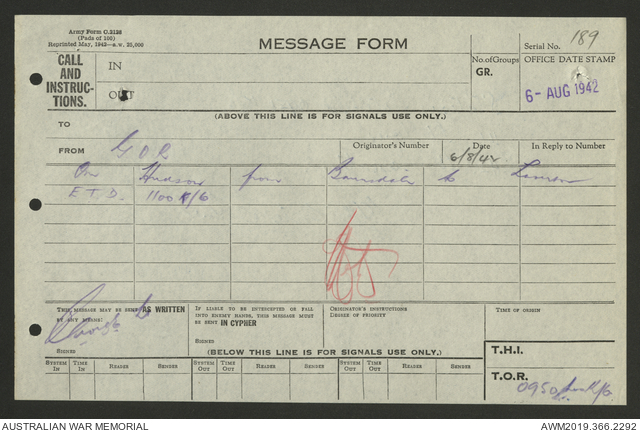 Army Form C.2128
(Pads of 100)
Reprinted May, 1942—a.w. 25,000
MESSAGE FORM
Serial No. 189
CALL AND INSTRUC-TIONS.
IN
OUT
No. of Groups
GR.
OFFICE DATE STAMP
6- AUG 1942
(ABOVE THIS LINE IS FOR SIGNALS USE ONLY.)
TO
FROM G O R
Originator's Number
Date 6/8/42
In Reply to Number
On Hudson from Bairnsdale to
E.T.D. 1100 K/6
THIS MESSAGE MAY BE SENT AS WRITTEN BY ANY MEANS.
SIGNED
IF LIABLE TO BE INTERCEPTED OR FALL INTO ENEMY HANDS, THIS MESSAGE MUST BE SENT IN CYPHER
SIGNED
ORIGINATOR'S INSTRUCTIONS
DEGREE OF PRIORITY
TIME OF ORIGIN
(BELOW THIS LINE IS FOR SIGNALS USE ONLY.)
T.H.I.
T.O.R. 0950
SYSTEM IN TIME IN READER SENDER SYSTEM OUT TIME OUT READER SENDER SYSTEM OUT TIME OUT READER SENDER
AUSTRALIAN WAR MEMORIAL
AWM2019.366.2292